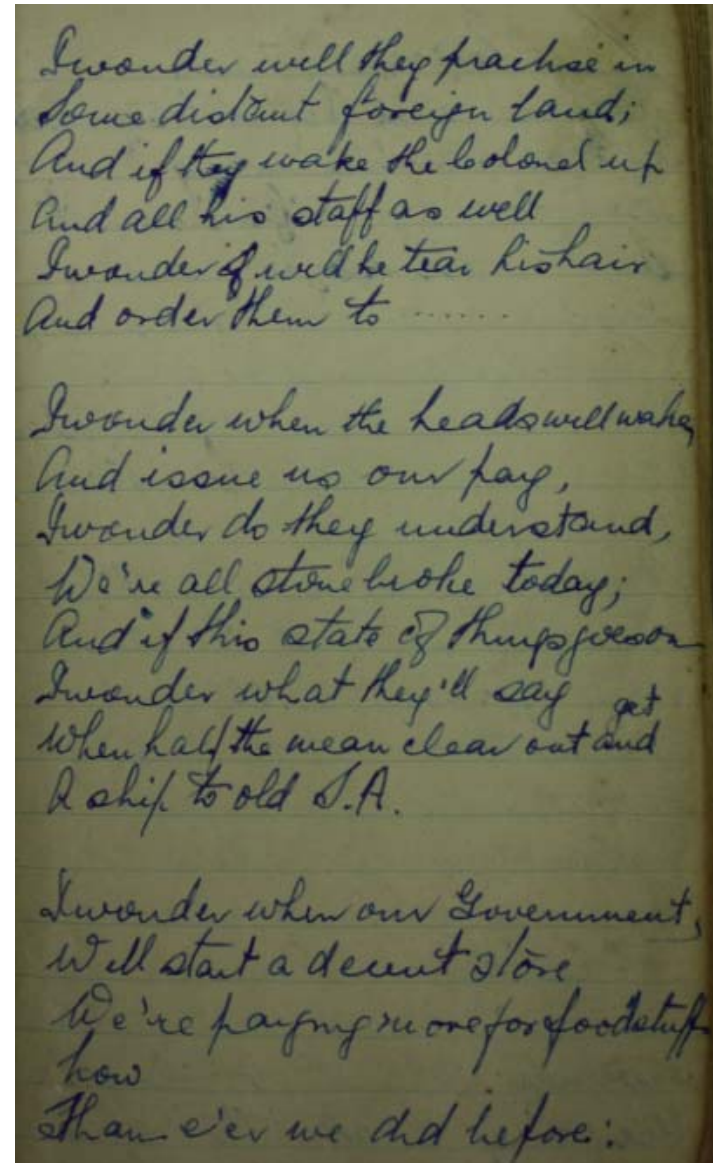 I wonder will they practise in
Some distant foreign land;
And if they wake the Colonel up
And all his staff as well
I wonder if will he tear his hair
And order them to .......
I wonder when the heads will wake,
And issue us our pay,
I wonder do they understand,
We're all stone broke today;
And if this state of things goes on
I wonder what they'll say
When half the mean clear out and get
A ship to old S.A.
I wonder when our Government,
Will start a decent store
We're paying more for foodstuffs
now
Than e'er we did before: